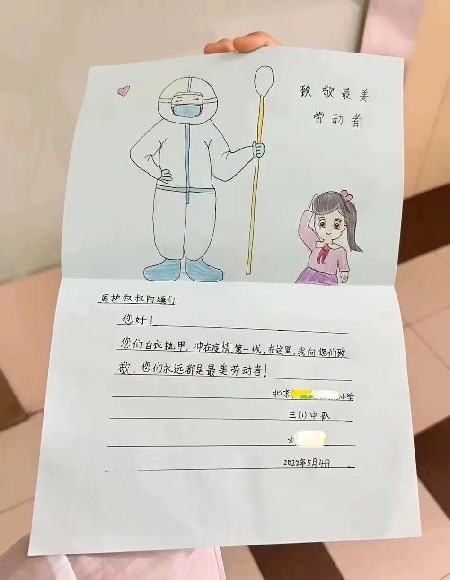 致敬最美
劳动者
医护叔叔阿姨们
您好！
您们白衣执甲，冲在疫情第一线，在这里，我向您们致
敬，您们永远都是最美劳动者！
北京 小学
三(1)中队
2022年5月4日